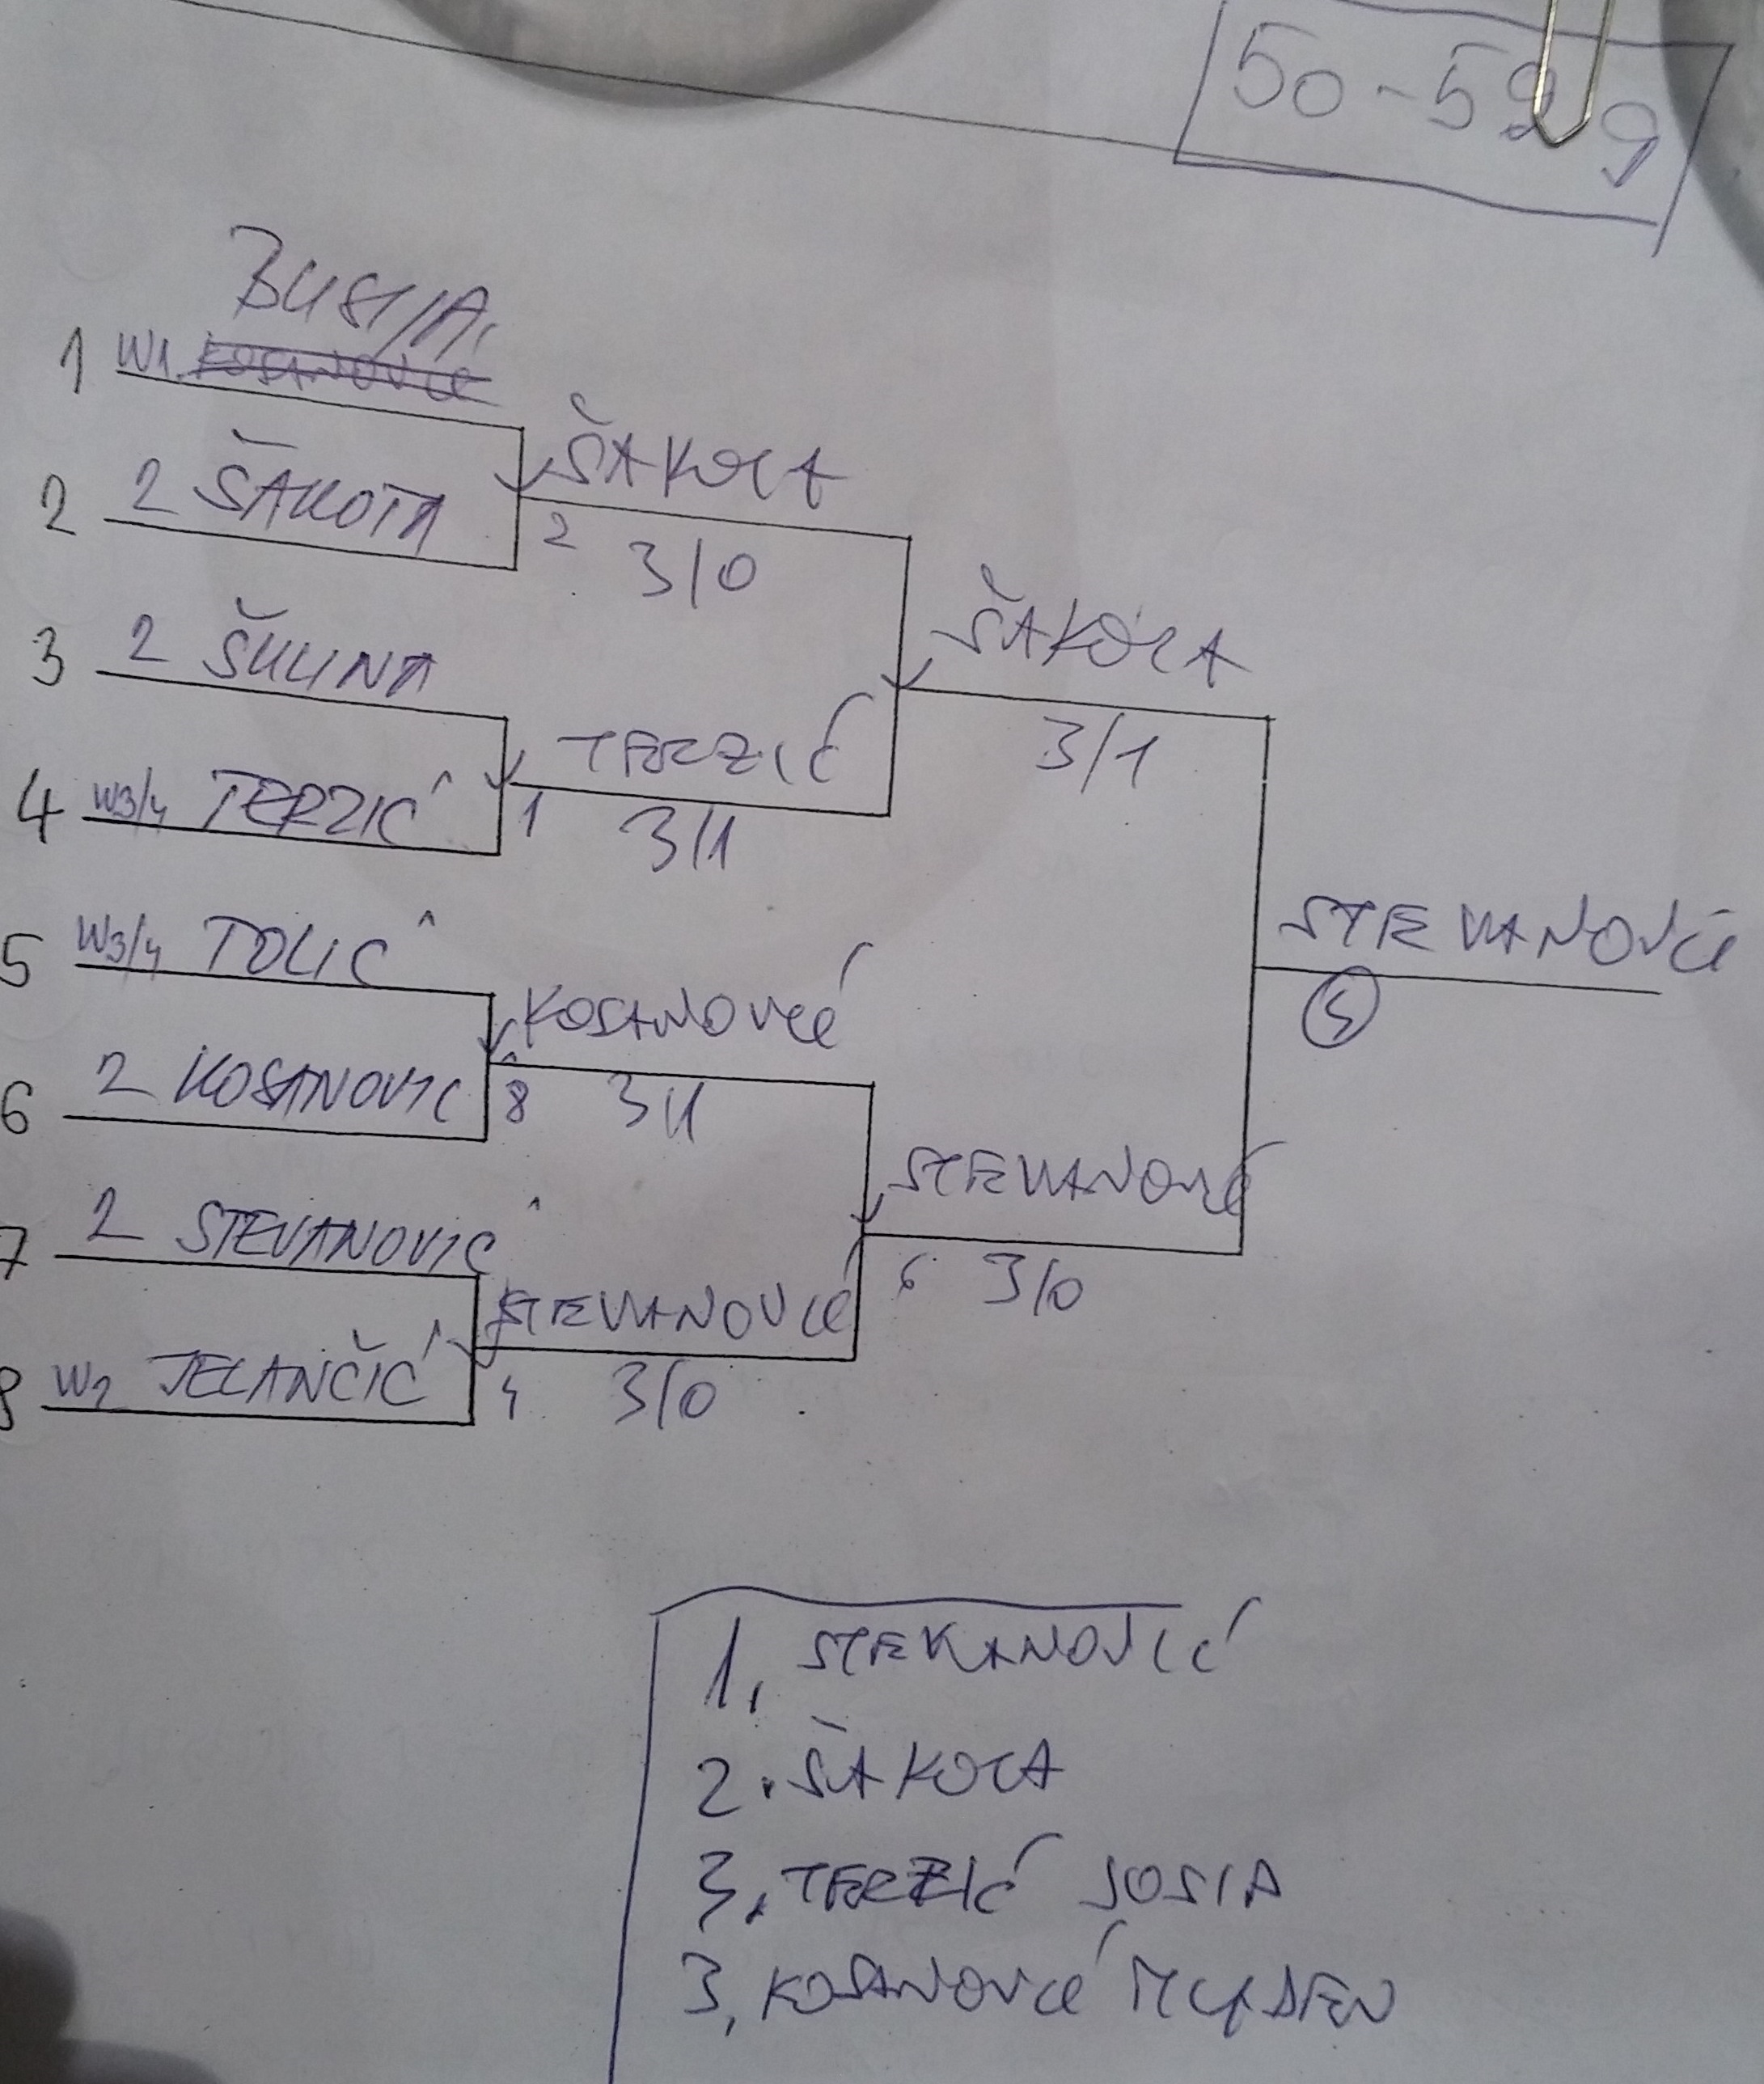 50-59 9
BUSIJA
1 W1 KOSANOVIĆ
ŠAKOTA
2 2 ŠAKOTA
2 3/0
ŠAKOTA
3 2 ŠULINA
3/1
TERZIĆ
4 W3/4 TERZIĆ
1 3/1
STEVANOVIĆ
5 W3/4 TOLIĆ
5
KOSANOVIĆ
6 2 KOSANOVIĆ
8 3/1
STEVANOVIĆ
7 2 STEVANOVIĆ
6 3/0
STEVANOVIĆ
8 W2 JELANČIĆ
4 3/0
1, STEVANOVIĆ
2. ŠAKOTA
3, TERZIĆ JOSIP
3, KOSANOVIĆ MLADEN